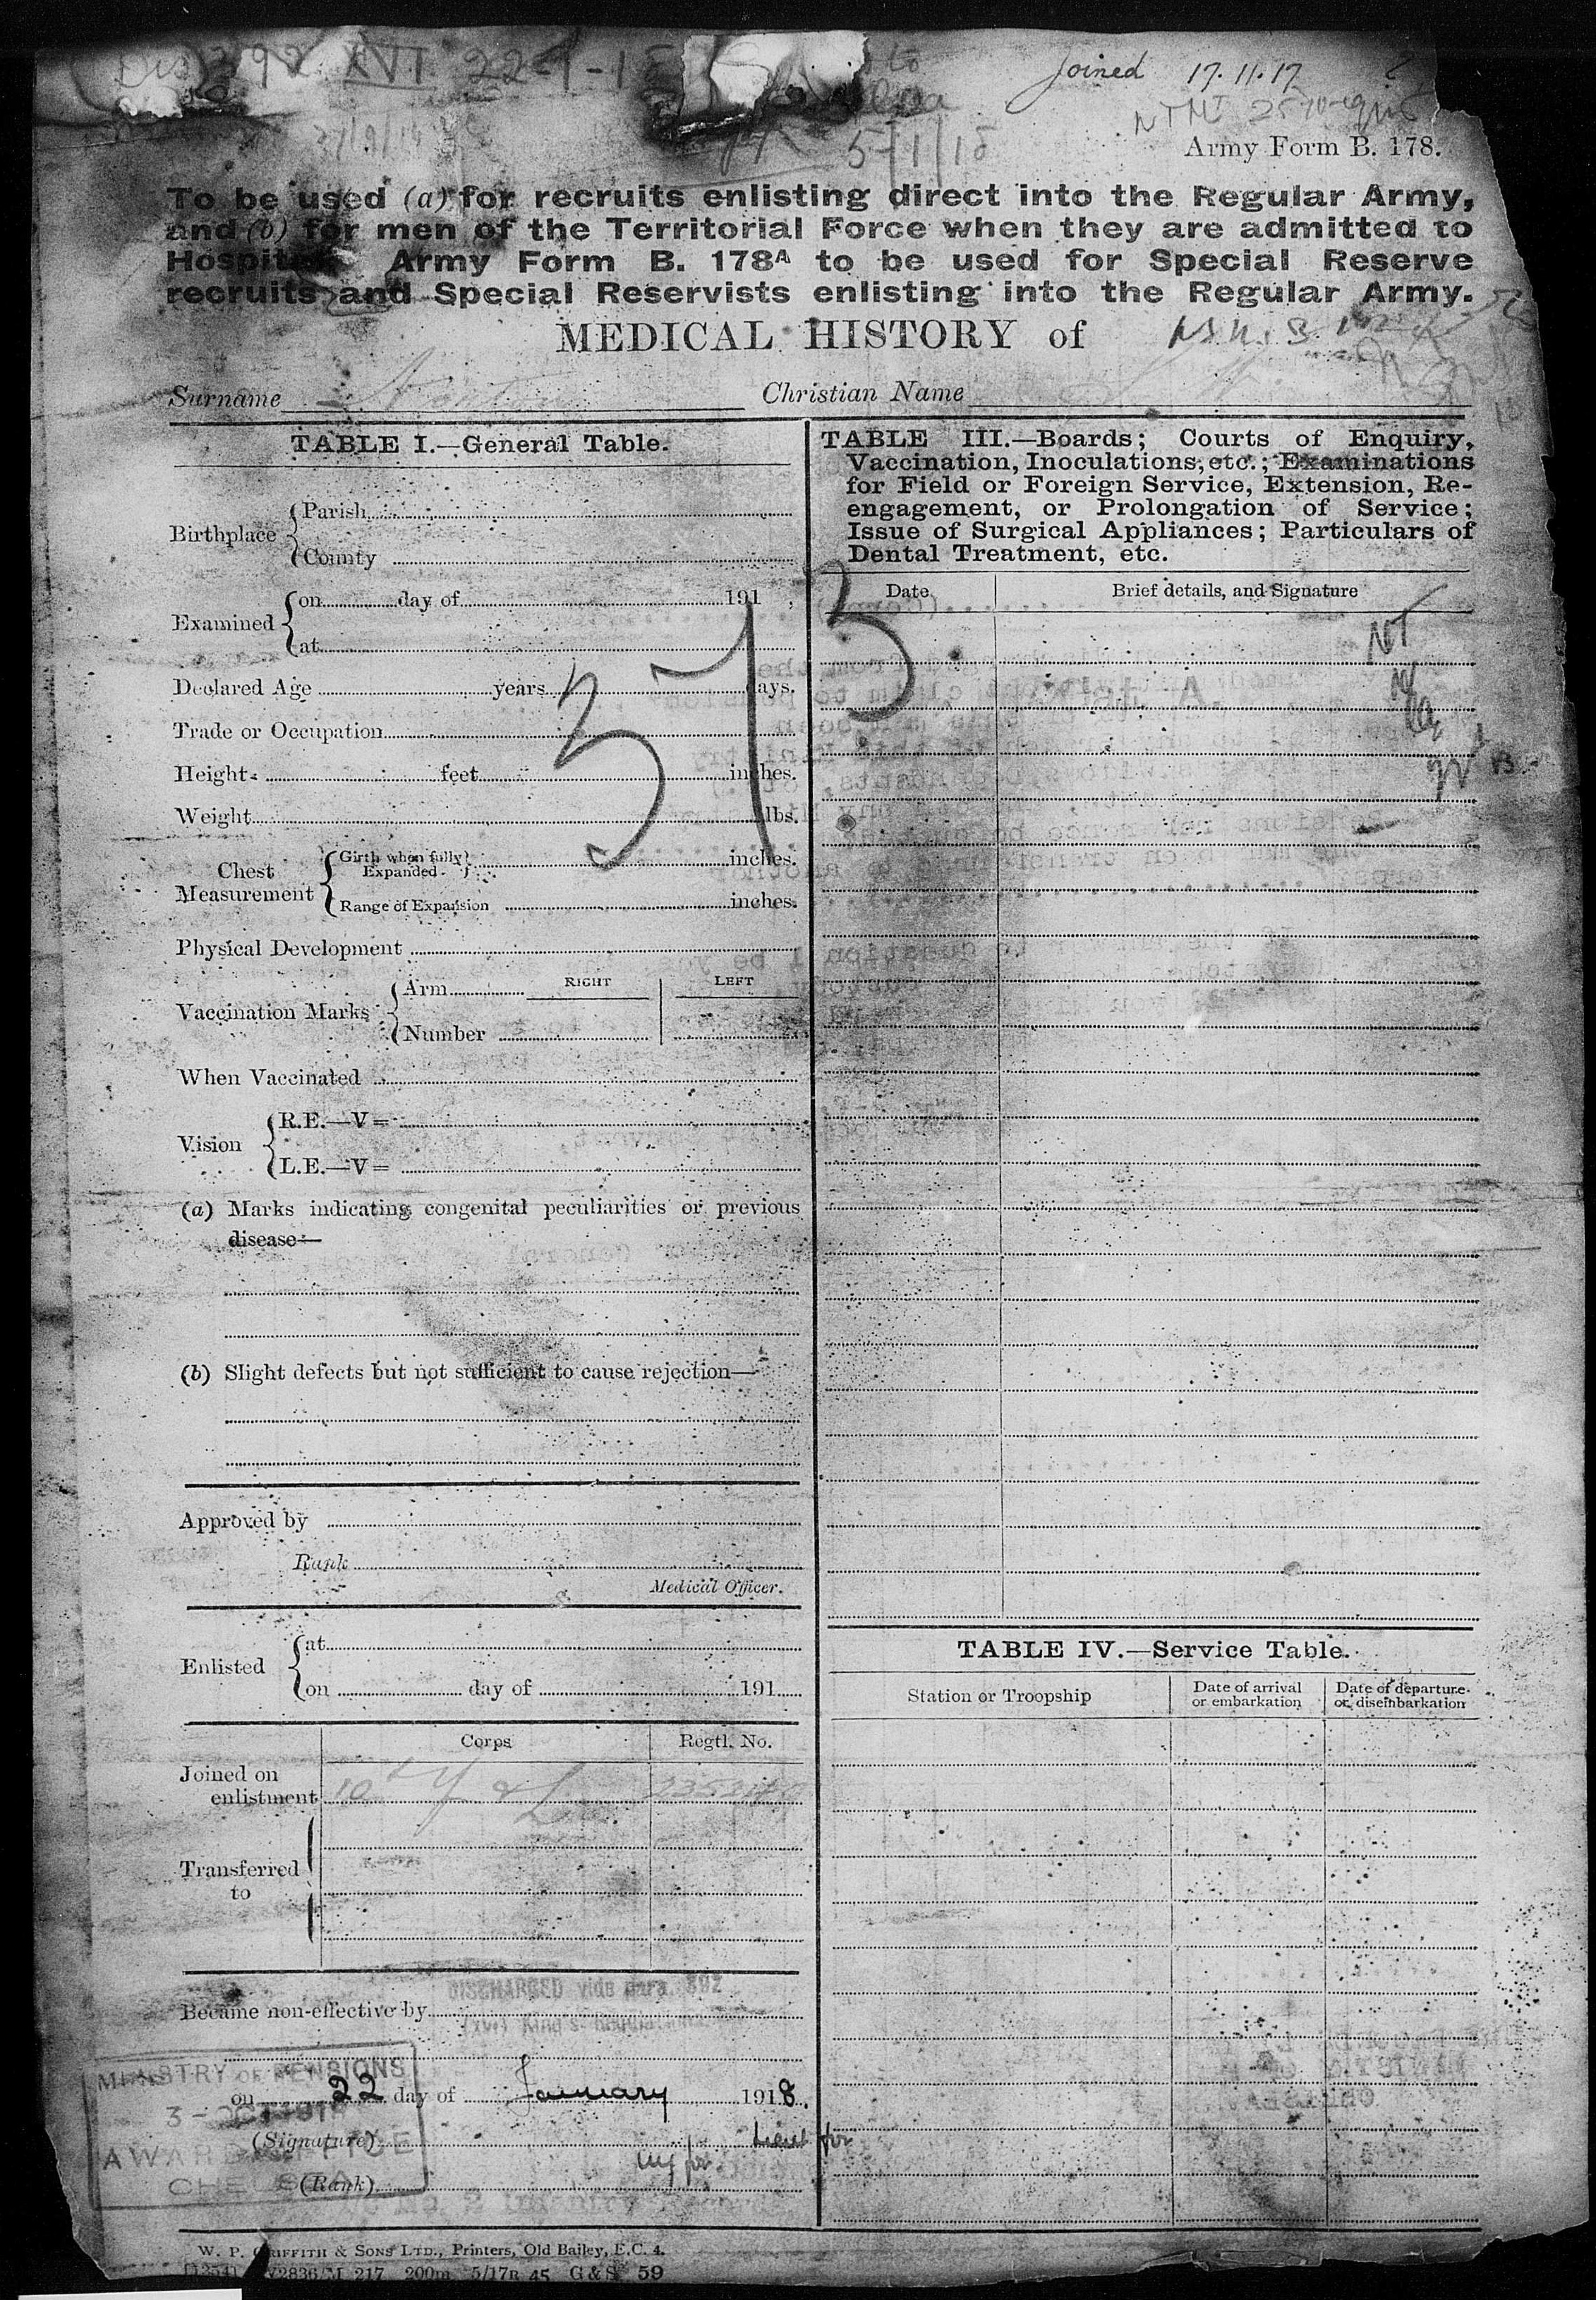 (Dis) 392 XVI 22-1-18
Joined 17.11.17
5/1/18
Army Form B. 178.
To be used (a) for recruits enlisting direct into the Regular Army,
and (b) for men of the Territorial Force when they are admitted to
Hospital. Army Form B. 178A to be used for Special Reserve
recruits and Special Reservists enlisting into the Regular Army.
MEDICAL HISTORY of
Surname
Christian Name
TABLE I.—General Table.
Birthplace
Parish
County
Examined
on day of 191 ,
at
Declared Age years days.
Trade or Occupation
Height feet inches.
Weight lbs.
Chest
Measurement
Girth when fully
Expanded inches.
Range of Expansion inches.
Physical Development
Vaccination Marks
Arm RIGHT LEFT
Number
When Vaccinated
Vision
R.E.—V=
L.E.—V=
(a) Marks indicating congenital peculiarities or previous
disease—
(b) Slight defects but not sufficient to cause rejection—
Approved by
Rank
Medical Officer.
Enlisted
at
on day of 191
Corps Regtl. No.
Joined on
enlistment 10th Y & L
Transferred
to
Became non-effective by
DISCHARGED vide para. 392
(XVI) King's Regulations
on 22 day of January 1918.
(Signature)
(Rank)
MINISTRY OF PENSIONS
3 - OCT
AWARDS OFFICE
CHELSEA
TABLE III.—Boards; Courts of Enquiry,
Vaccination, Inoculations, etc.; Examinations
for Field or Foreign Service, Extension, Re-
engagement, or Prolongation of Service;
Issue of Surgical Appliances; Particulars of
Dental Treatment, etc.
Date Brief details, and Signature
NT
TABLE IV.—Service Table.
Station or Troopship
Date of arrival
or embarkation
Date of departure
or disembarkation
W. P. GRIFFITH & SONS LTD., Printers, Old Bailey, E.C. 4.
217 200m 5/17R 45 G & S 59